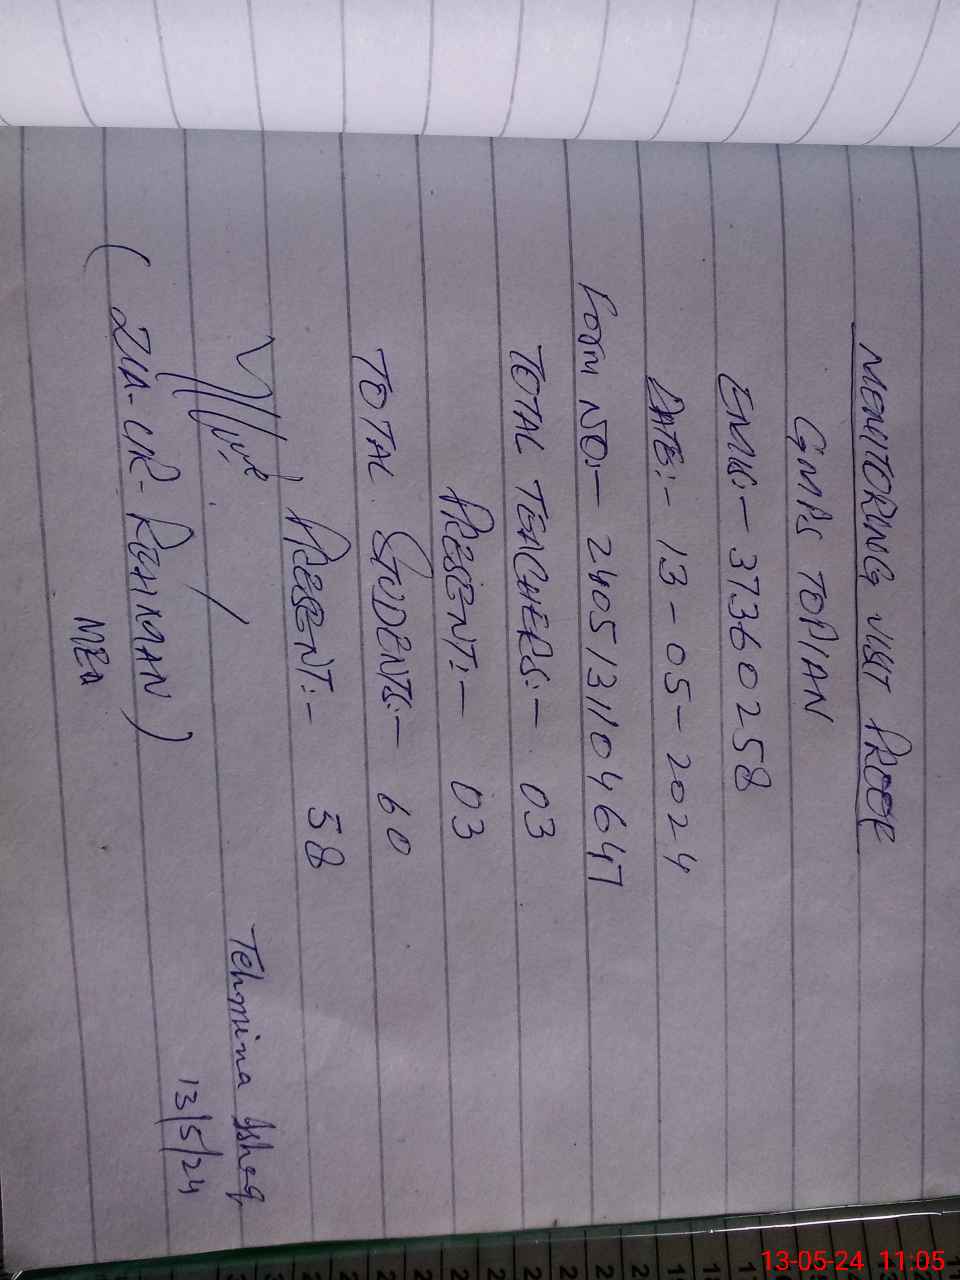 MENITORING VISIT PROOF
GMPS TOPIAN
EMIS:- 37360258
DATE:- 13-05-2024
Form NO:- 2405131104647
TOTAL TEACHERS:- 03
PRESENT:- 03
TOTAL STUDENTS:- 60
PRESENT:- 58
Tehmina Ishaq
13/5/24
(ZIA-UR-REHMAN)
MEA
13-05-24 11:05